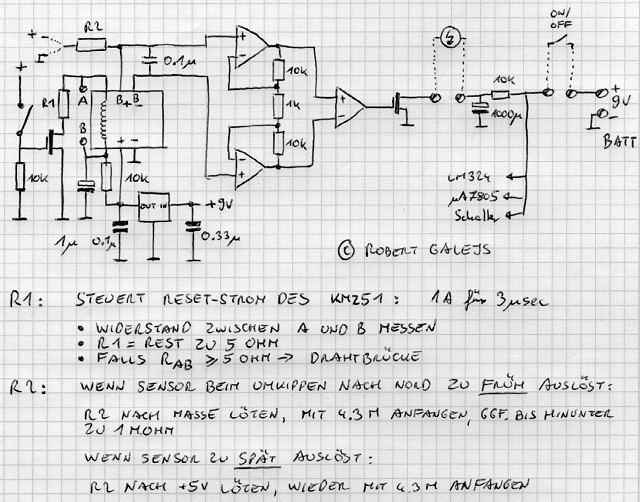 R2
ON/
OFF
+
0.1µ
10k
R1
A
B+ B-
+
-
1k
+
-
10k
1000µ
+
9V
-
BATT
B
+ -
10k
LM324
µA7805
Schalter
10k
10k
1µ
0.1µ
OUT IN
+9V
0.33µ
© ROBERT GALEJS
R1: STEUERT RESET-STROM DES KMZ51: 1A für 3µsec
• WIDERSTAND ZWISCHEN A UND B MESSEN
• R1 = REST ZU 5 OHM
• FALLS RAB ≥ 5 OHM → DRAHTBRÜCKE
R2: WENN SENSOR BEIM UMKIPPEN NACH NORD ZU FRÜH AUSLÖST:
R2 NACH MASSE LÖTEN, MIT 4.3M ANFANGEN, GGF. BIS HINUNTER
ZU 1MOHM
WENN SENSOR ZU SPÄT AUSLÖST:
R2 NACH +5V LÖTEN, WIEDER MIT 4.3M ANFANGEN